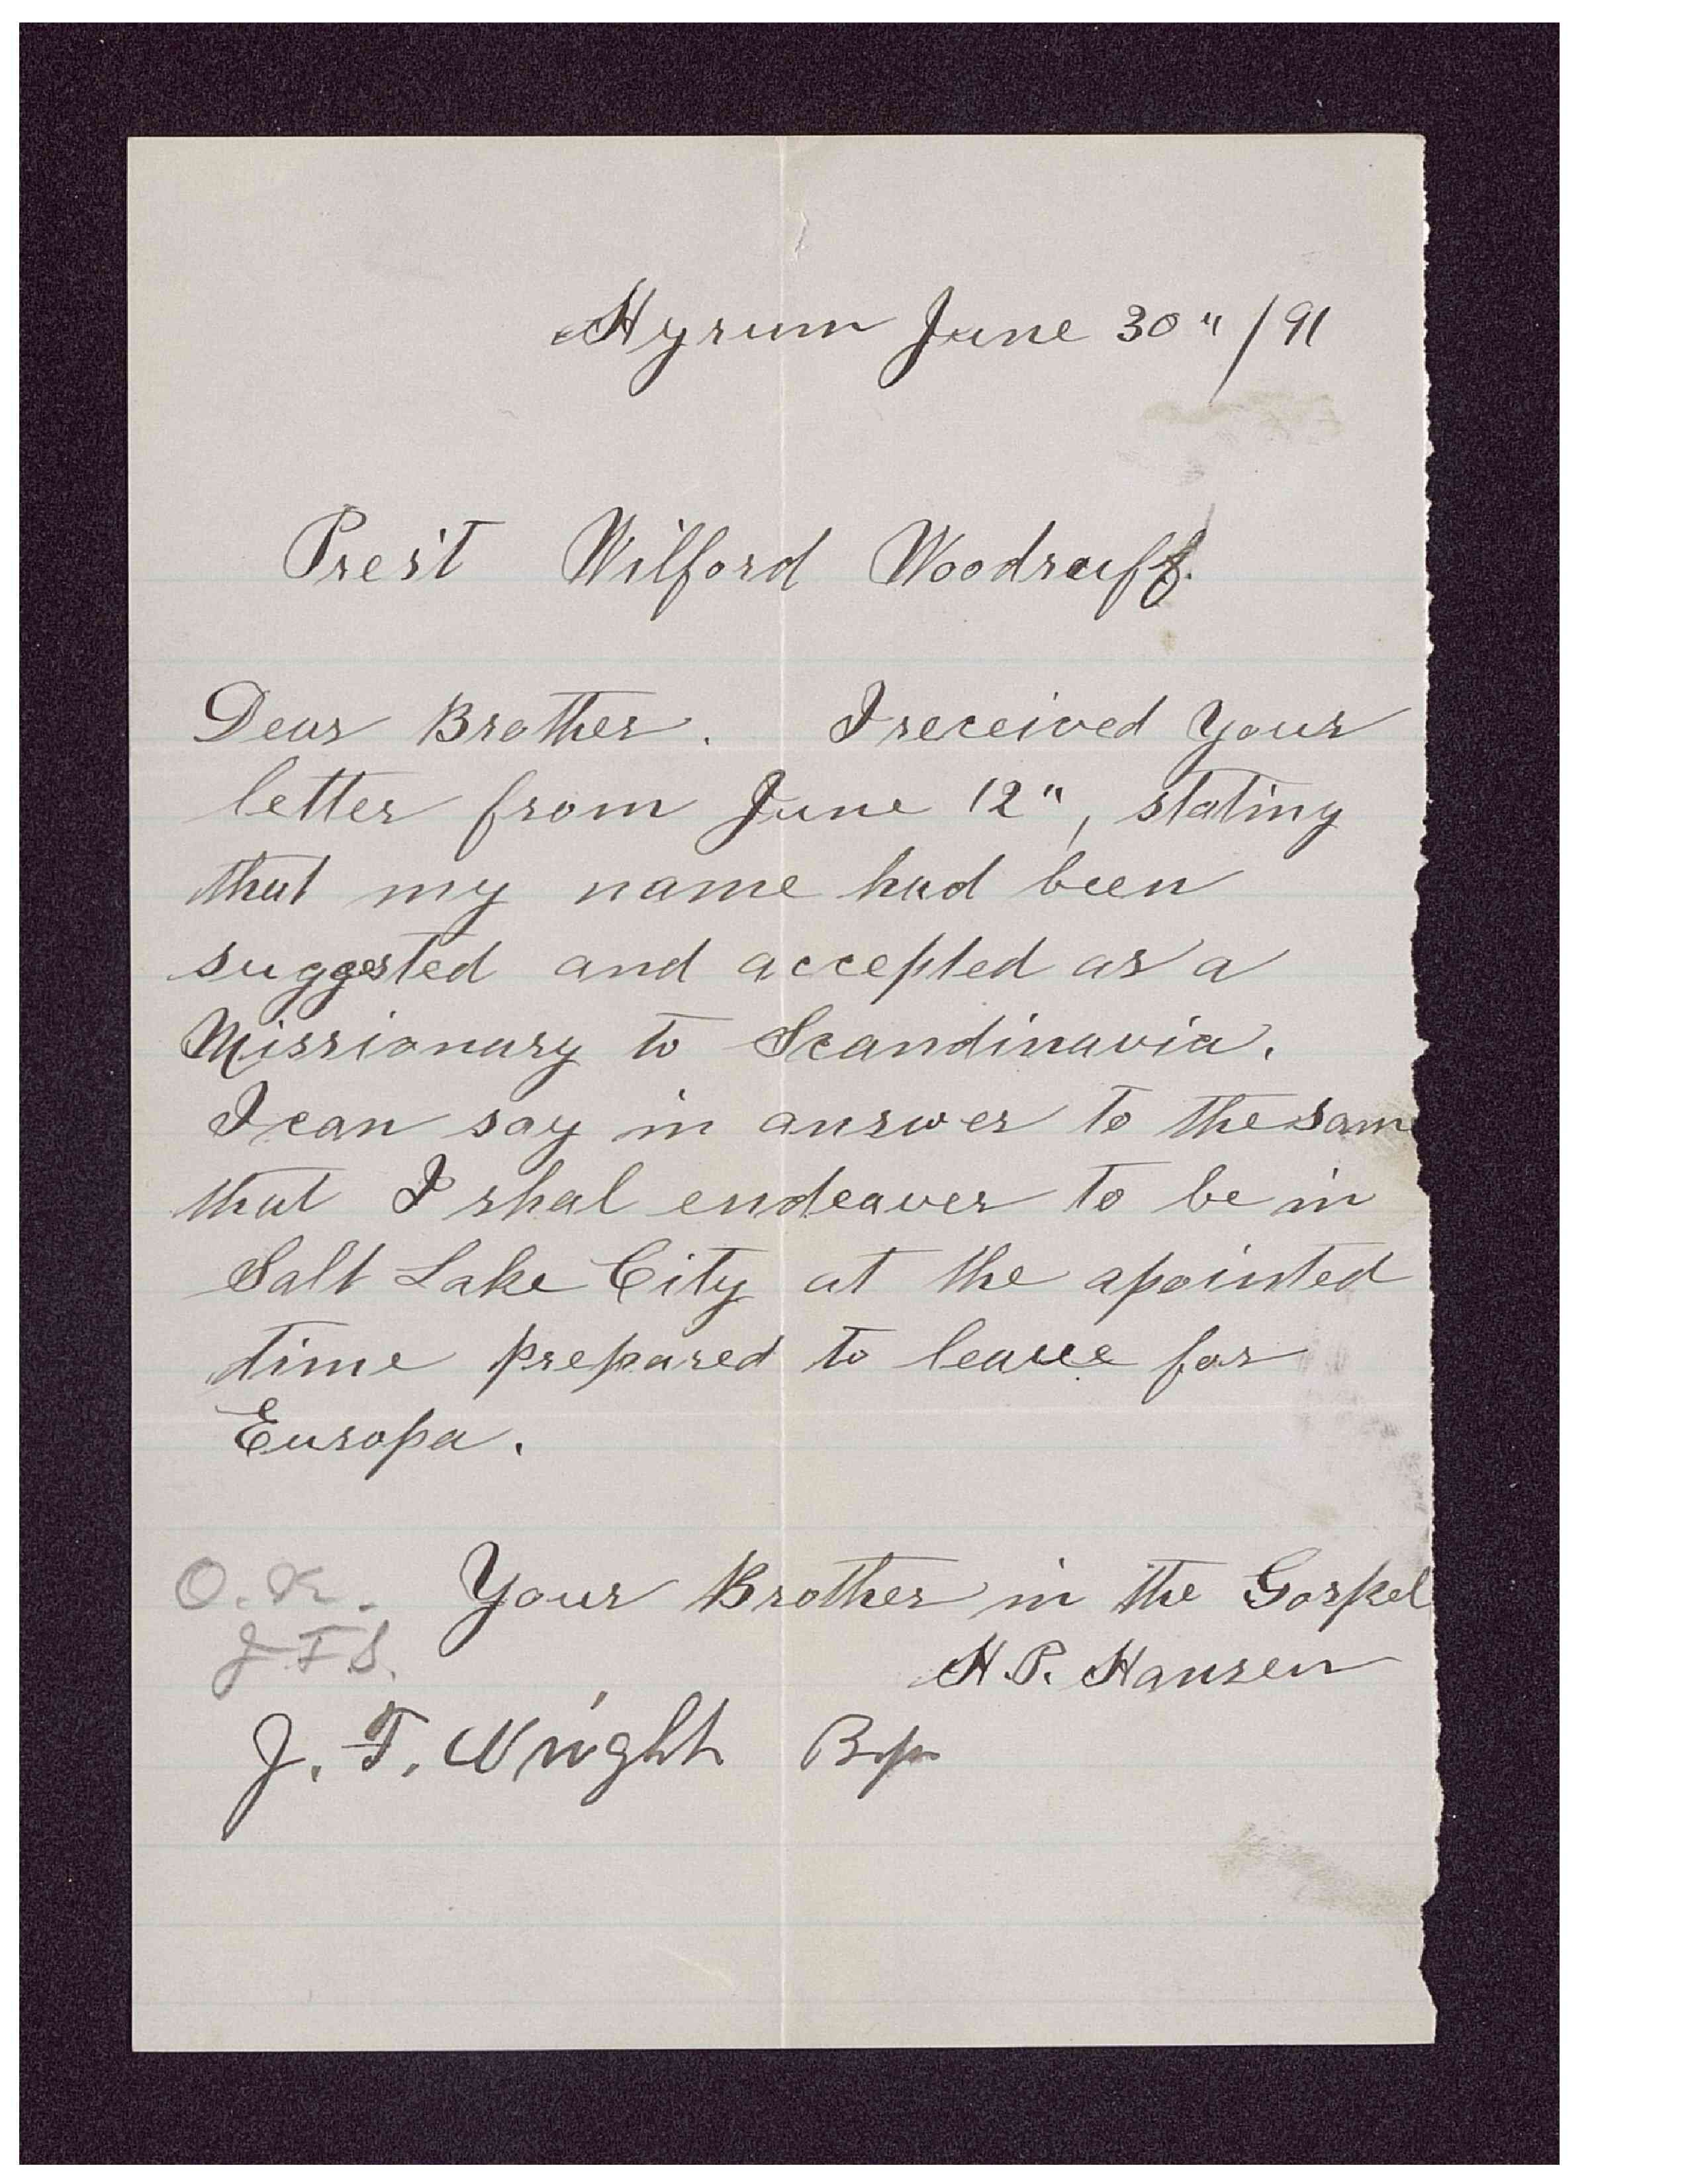 Hyrum June 30"/91
Pres't Wilford Woodruff.
Dear Brother. I received Your
letter from June 12", stating
that my name had been
suggested and accepted as a
Missionary to Scandinavia.
I can say in answer to the same
that I shal endeaver to be in
Salt Lake City at the apointed
time prepared to leave for
Europa.
Your Brother in the Gospel
H. P. Hansen
O. K.
J F S.
J. F. Wright Bp